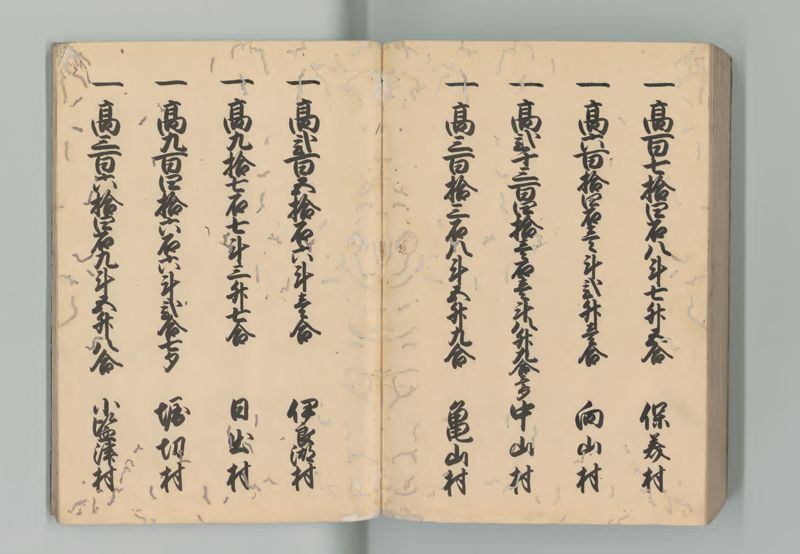 一高百七拾四石八斗七升五合 保美村
一高六百拾四石壱斗弐升壱合 向山村
一高弐千三百四拾壱石壱斗八升九合 中山村
一高三百拾三石八斗五升九合 亀山村
一高弐百五拾石六斗壱合 伊良湖村
一高九拾七石七斗三升七合 日出村
一高九百四拾六石六斗弐合七夕 堀切村
一高三百六拾四石九斗五升八合 小塩津村